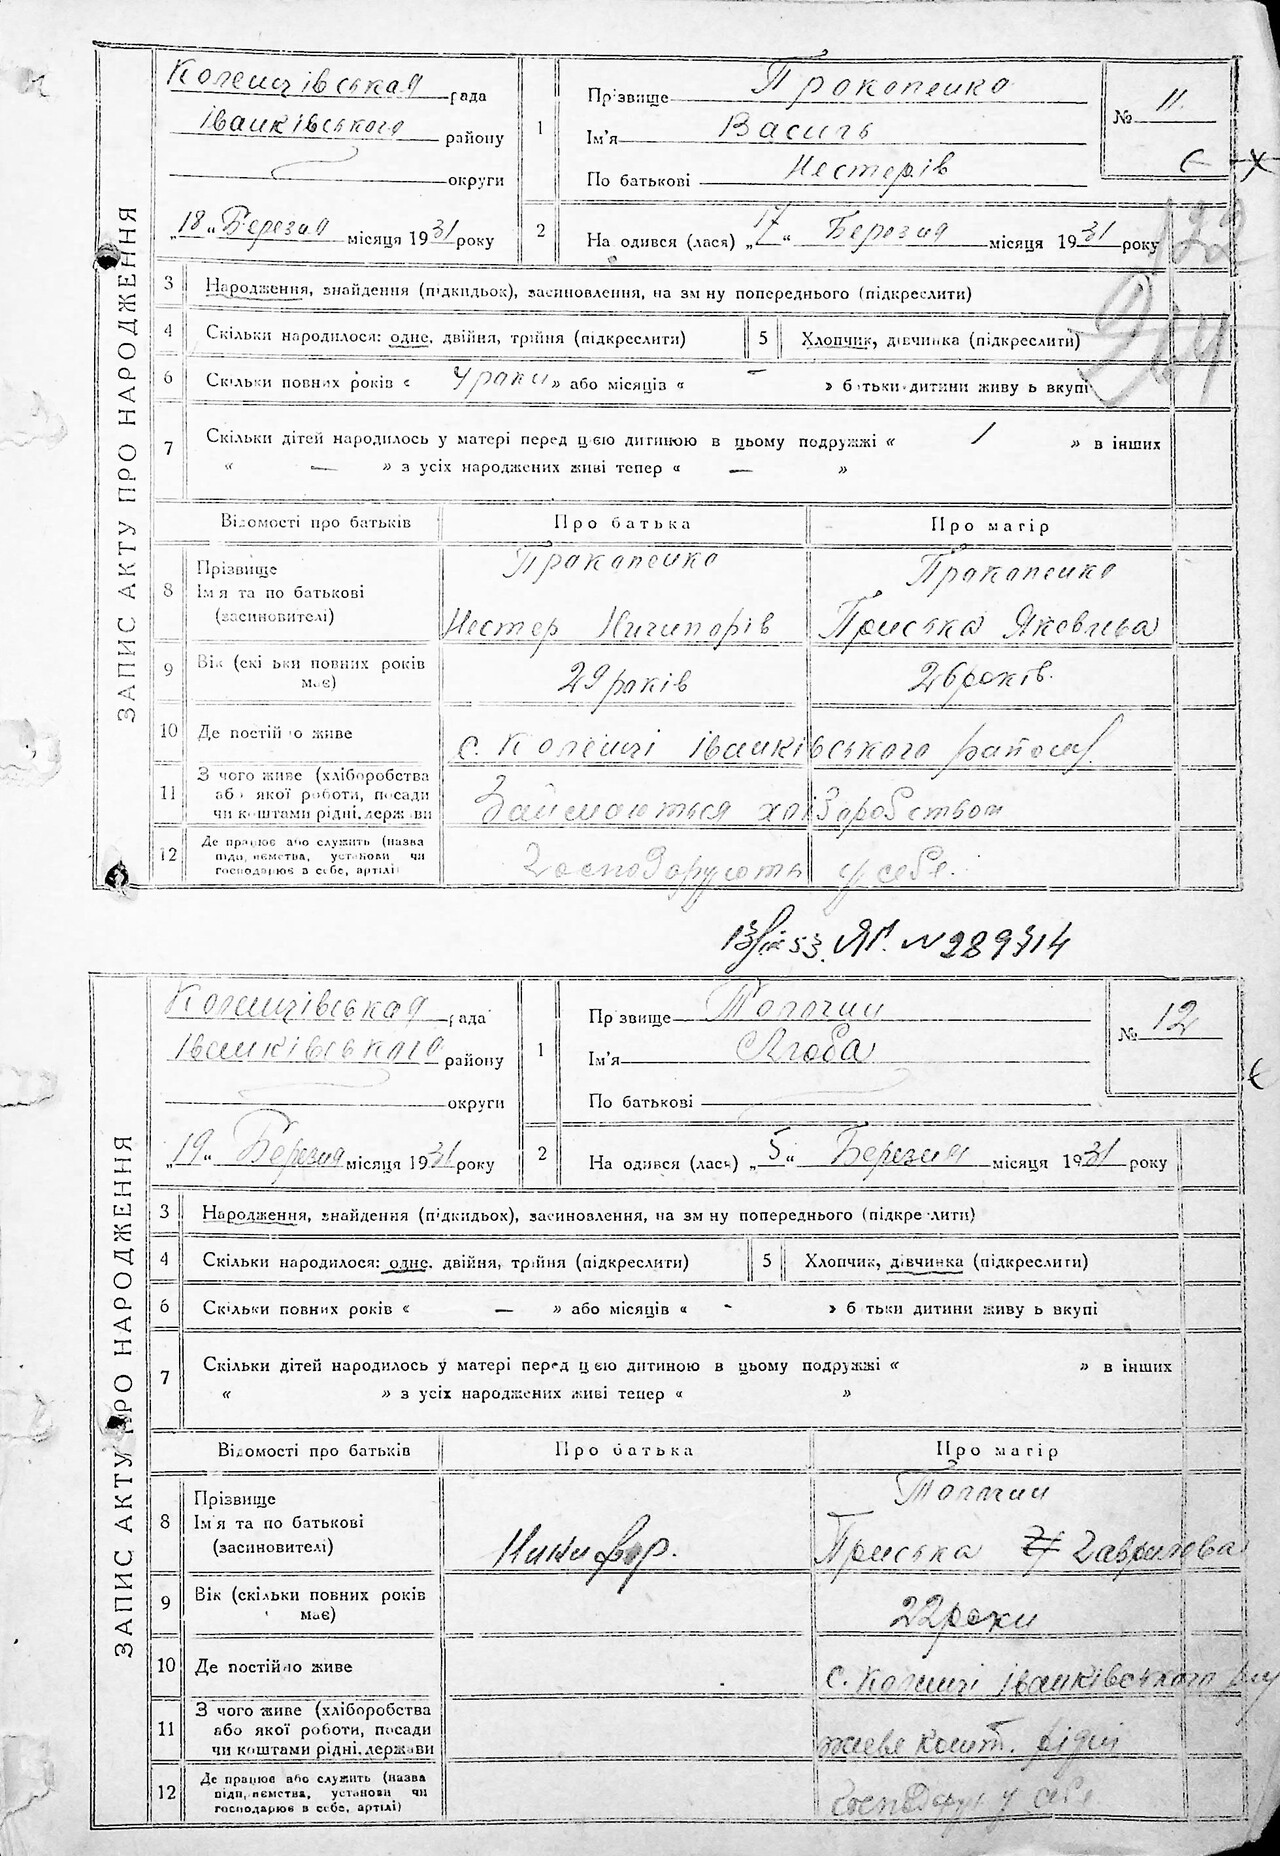 ЗАПИС АКТУ ПРО НАРОДЖЕННЯ
Коленцівськая рада
іванківського району
округи
„18“ Березня місяця 1931 року
1
Прізвище Прокопенко
Ім'я Василь
По батькові Нестерів
№ 11
2
На одився (лася) „17“ Березня місяця 1931 року
122
3 Народження, знайдення (підкидьок), засиновлення, на зм ну попереднього (підкреслити)
4 Скільки народилося: одне, двійня, трійня (підкреслити)
5 Хлопчик, дівчинка (підкреслити)
6 Скільки повних років « 4 роки » або місяців « - » батьки дитини живу ь вкупі
7 Скільки дітей народилось у матері перед цією дитиною в цьому подружжі « 1 » в інших
« — » з усіх народжених живі тепер « — »
Відомості про батьків Про батька Про матір
8 Прізвище
Ім я та по батькові
(засиновителі)
Прокопенко
Нестер Ничипорів
Прокопенко
Приська Яковльва
9 Вік (скі ьки повних років
має)
29 років
26 років.
10 Де постійно живе
с. Коленці іванківського району
11 З чого живе (хліборобства
або якої роботи, посади
чи коштами рідні, держави
Займаються хліборобством
12 Де працює або служить (назва
підп, иємства, установи чи
господарює в себе, артілі)
Господарують у себе.
53. ЯГ. N 289314
ЗАПИС АКТУ ПРО НАРОДЖЕННЯ
Коленцівськая рада
іванківського району
округи
„19“ Березня місяця 1931 року
1
Пр звище Толочин
Ім'я Ягоба
По батькові
№ 12
2
На одився (лась) „5“ Березня місяця 1931 року
3 Народження, знайдення (підкидьох), засиновлення, на зм ну попереднього (підкре лити)
4 Скільки народилося: одне, двійня, трійня (підкреслити)
5 Хлопчик, дівчинка (підкреслити)
6 Скільки повних років « — » або місяців « - » б тьки дитини живу ь вкупі
7 Скільки дітей народилось у матері перед цією дитиною в цьому подружжі « » в інших
« » з усіх народжених живі тепер « »
Відомості про батьків Про батька Про матір
8 Прізвище
Ім'я та по батькові
(засиновителі)
Никифор.
Толочин
Приська Гаврилова
9 Вік (скільки повних років
має)
22 роки
10 Де постійно живе
с. Коленці іванківського
11 З чого живе (хліборобства
або якої роботи, посади
чи коштами рідні, держави
живе кошт. рідні
12 Де працює або служить (назва
підп, иємства, установи чи
господарює в себе, артілі)
господарує у себе